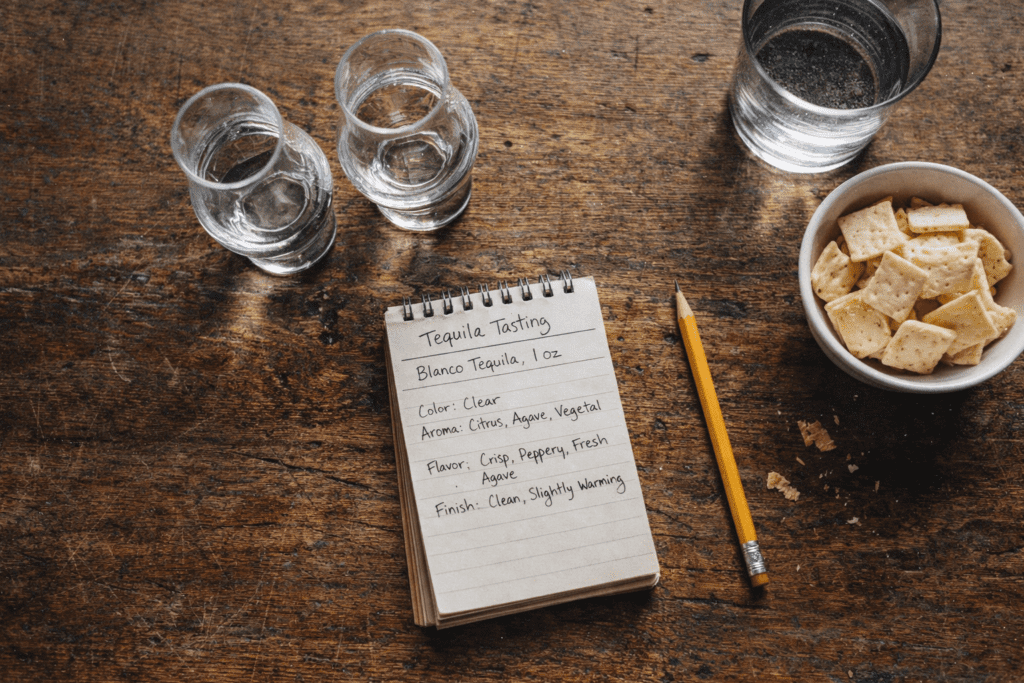 Tequila Tasting
Blanco Tequila, 1 oz
Color: Clear
Aroma: Citrus, Agave, Vegetal
Flavor: Crisp, Peppery, Fresh
Agave
Finish: Clean, Slightly Warming